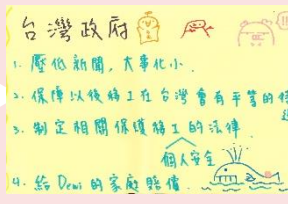 台灣政府
1. 壓低新聞，大事化小.
2. 保障以後移工在台灣會有平等的待
遇
3. 制定相關保護移工的法律
個人安全
4. 給Dewi的家庭賠償.